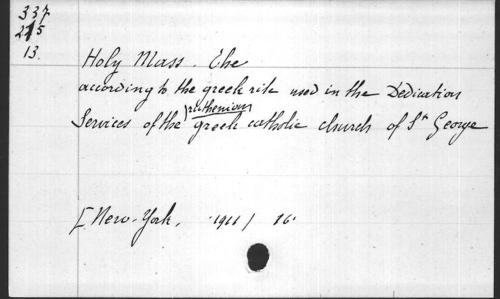 337
215
13.
Holy Mass. The
according to the greek rite used in the Dedication
Services of the ruthenian greek catholic church of St George
[New-York, 1911/ 16°